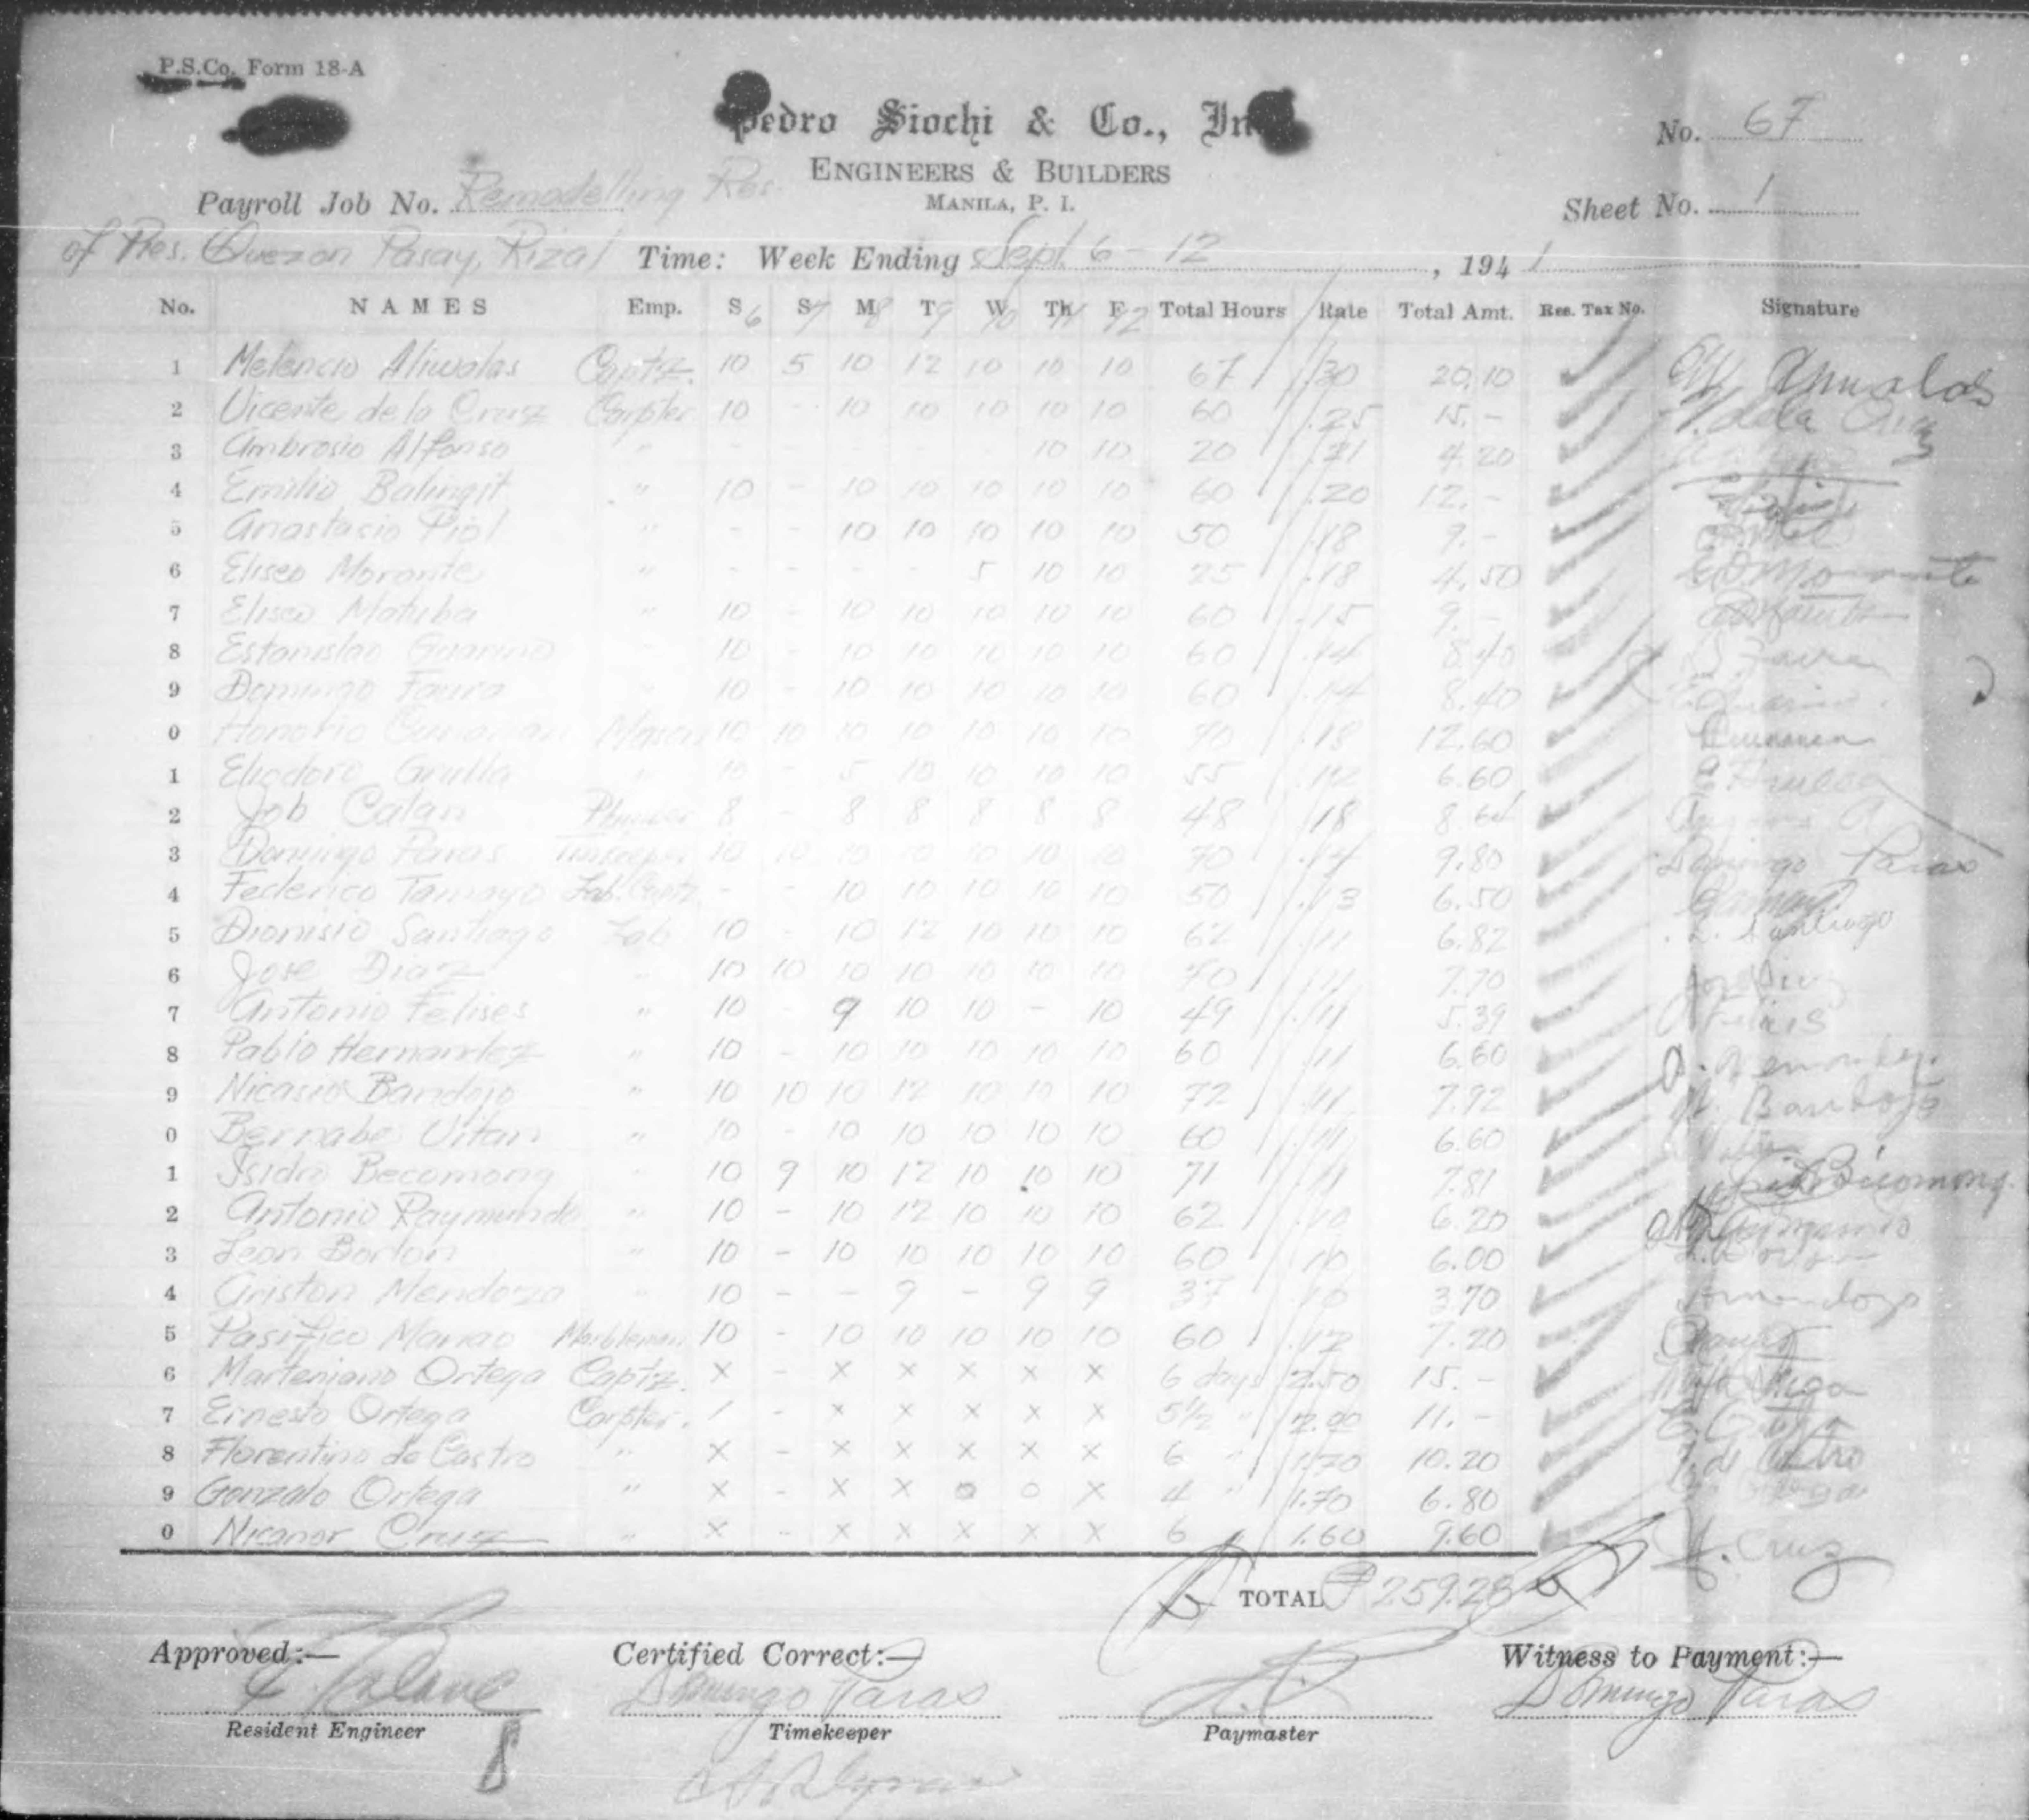 P.S.Co. Form 18-A
Pedro Siochi & Co., Inc.
No. 67
ENGINEERS & BUILDERS
Payroll Job No. Remodelling Res.
MANILA, P. I.
Sheet No. 1
of Pres. Quezon Pasay, Rizal Time: Week Ending Sept. 6 - 12, 1941
No. NAMES Emp. S 6 S 7 M 8 T 9 W 10 Th 11 F 12 Total Hours Rate Total Amt. Res. Tax No. Signature
1 Melencio Aliwalas Captz. 10 5 10 12 10 10 10 67 .30 20.10
2 Vicente de la Cruz Carpter 10 - 10 10 10 10 10 60 .25 15.- V. dela Cruz
3 Ambrosio Alfonso " - - - - - 10 10 20 .21 4.20
4 Emilio Balingit " 10 - 10 10 10 10 10 60 .20 12.-
5 Anastacio Piol " - - 10 10 10 10 10 50 .18 9.-
6 Eliseo Morante " - - - - 5 10 10 25 .18 4.50 Morante
7 Eliseo Matuba " 10 - 10 10 10 10 10 60 .15 9.-
8 Estanislao Guarino " 10 - 10 10 10 10 10 60 .14 8.40
9 Domingo Faura " 10 - 10 10 10 10 10 60 .14 8.40
0 Honorio Cunanan Mason 10 10 10 10 10 10 10 70 .18 12.60 Cunanan
1 Eliodoro Grulla " 10 - 5 10 10 10 10 55 .12 6.60
2 Job Calan Plumber 8 - 8 8 8 8 8 48 .18 8.64
3 Domingo Paras Timekeeper 10 10 10 10 10 10 10 70 .14 9.80 Domingo Paras
4 Federico Tamayo Lab. Captz. - - 10 10 10 10 10 50 .13 6.50
5 Dionisio Santiago Lab. 10 - 10 12 10 10 10 62 .11 6.82 D. Santiago
6 Jose Diaz " 10 10 10 10 10 10 10 70 .11 7.70 Jose Diaz
7 Antonio Felises " 10 - 9 10 10 - 10 49 .11 5.39
8 Pablo Hernandez " 10 - 10 10 10 10 10 60 .11 6.60 P. Hernandez
9 Nicasio Bandojo " 10 10 10 12 10 10 10 72 .11 7.92 N. Bandojo
0 Bernabe Vitan " 10 - 10 10 10 10 10 60 .11 6.60
1 Isidro Becomong " 10 9 10 12 10 10 10 71 .11 7.81 Bicomong
2 Antonio Raymundo " 10 - 10 12 10 10 10 62 .10 6.20
3 Leon Borlon " 10 - 10 10 10 10 10 60 .10 6.00
4 Ariston Mendoza " 10 - - 9 - 9 9 37 .10 3.70 A. Mendoza
5 Pasifico Manao Marbleman 10 - 10 10 10 10 10 60 .12 7.20
6 Marteniano Ortega Captz. x - x x x x x 6 days 2.50 15.-
7 Ernesto Ortega Carpter. / - x x x x x 5½ " 2.00 11.-
8 Florentino de Castro " x - x x x x x 6 " 1.70 10.20 F. de Castro
9 Gonzalo Ortega " x - x x o o x 4 " 1.70 6.80
0 Nicanor Cruz " x - x x x x x 6 1.60 9.60 N. Cruz
TOTAL ₱259.28
Approved:— Certified Correct:— Witness to Payment:—
Domingo Paras Domingo Paras
Resident Engineer Timekeeper Paymaster